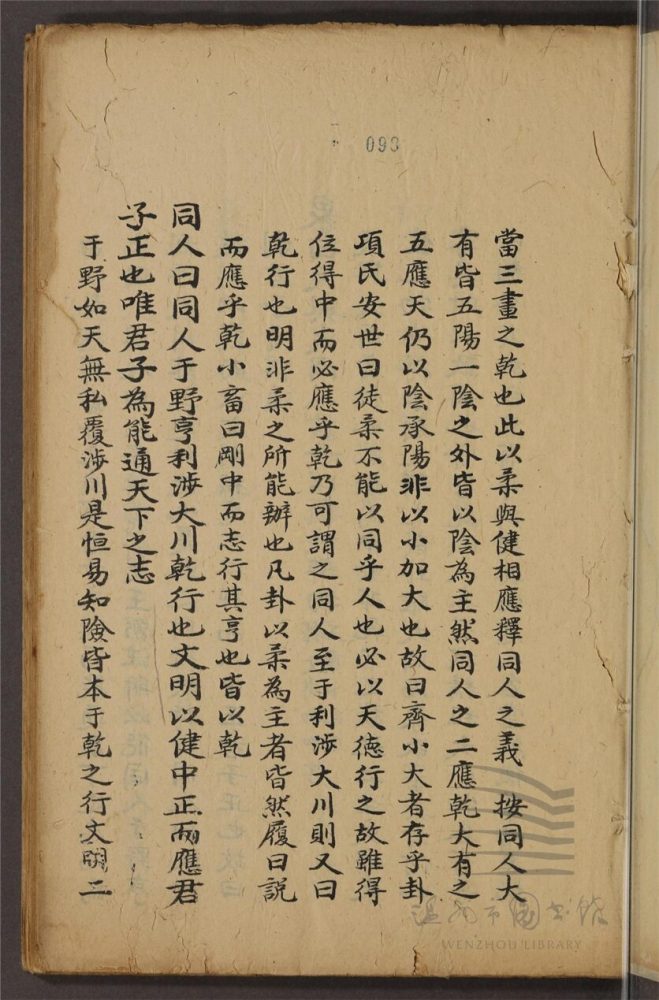 093
當三畫之乾也此以柔與健相應釋同人之義 按同人大
有皆五陽一陰之外皆以陰為主然同人之二應乾大有之
五應天仍以陰承陽非以小加大也故曰齊小大者存乎卦
項氏安世曰徒柔不能以同乎人也必以天德行之故雖得
位得中而必應乎乾乃可謂之同人至于利涉大川則又曰
乾行也明非柔之所能辦也凡卦以柔為主者皆然履曰説
而應乎乾小畜曰剛中而志行其亨也皆以乾
同人曰同人于野亨利涉大川乾行也文明以健中正而應君
子正也唯君子為能通天下之志
于野如天無私覆涉川是恒易知險皆本于乾之行文明二
溫州市圖書館
WENZHOU LIBRARY